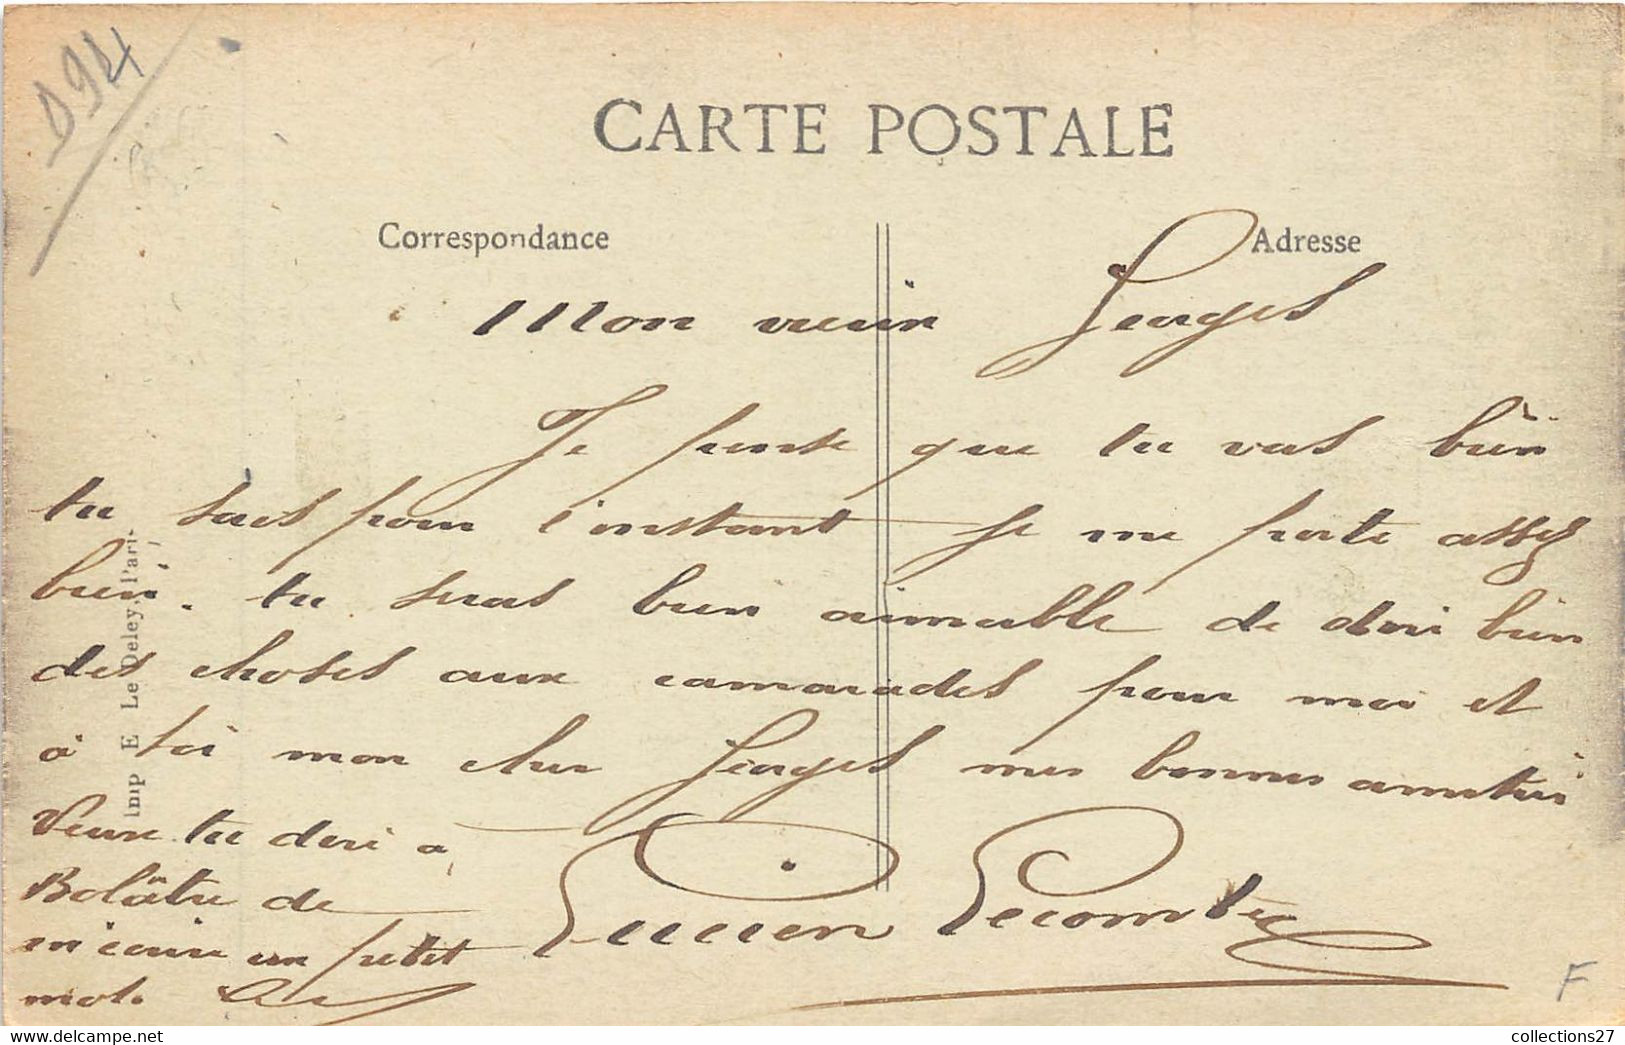 D94
CARTE POSTALE
Correspondance
Adresse
Mon vieux Georges
Je pense que tu vas bien
tu sais pour l'instant je me porte assez
bien. tu seras bien aimable de dire bien
des choses aux camarades pour moi et
à toi mon cher Georges mes bonnes amitiés
Veux tu dire à
Bolâtre de
m'écrire un petit
mot.
Lucien Lecomte
Imp E Le Deley, Paris
F
collections27